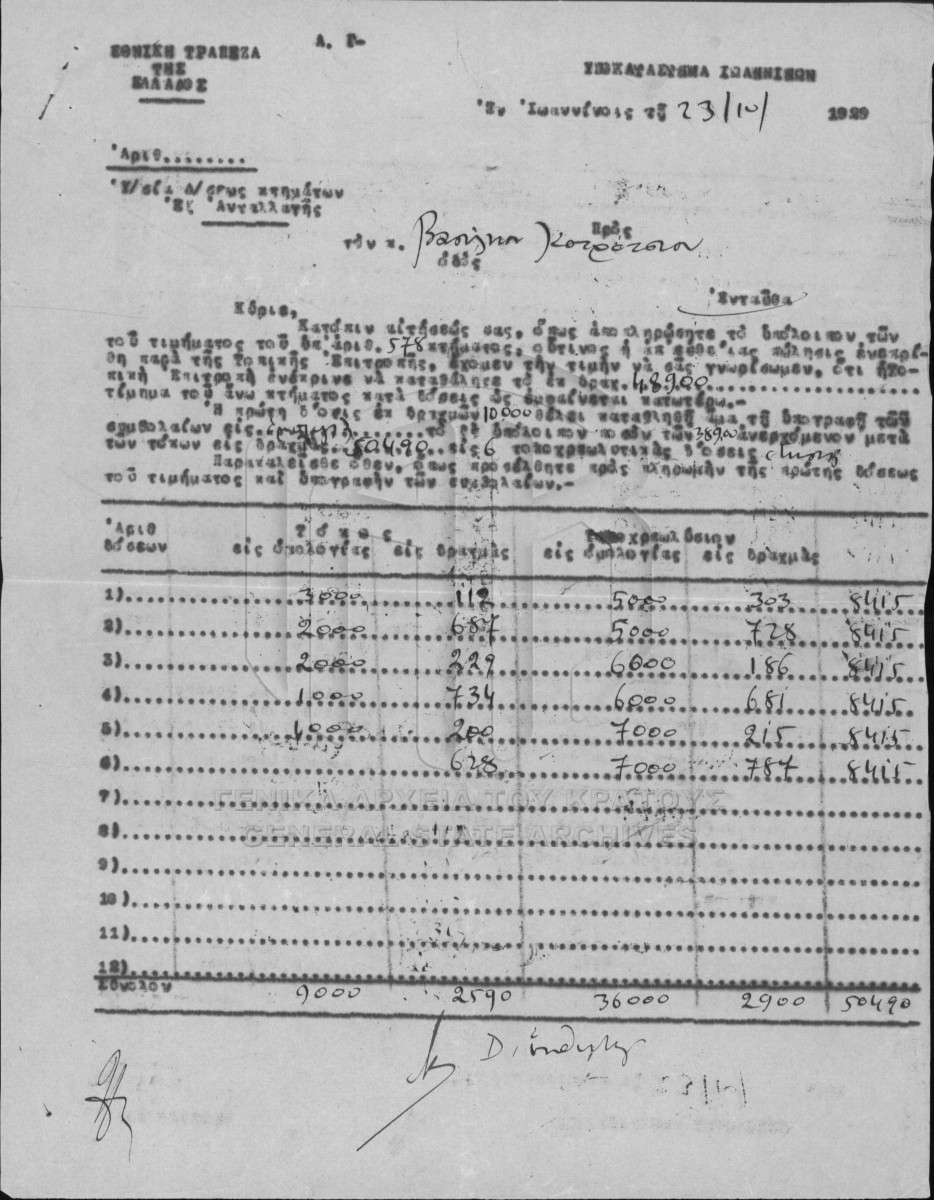 Α. Γ-
ΕΘΝΙΚΗ ΤΡΑΠΕΖΑ
ΤΗΣ
ΕΛΛΑΔΟΣ
ΥΠΟΚΑΤΑΣΤΗΜΑ ΙΩΑΝΝΙΝΩΝ
Ἐν Ἰωαννίνοις τῇ 23/10/ 1929
Ἀριθ.........
Ὑ/σία Δ/σεως κτημάτων
Ἐξ Ἀνταλλαγῆς
Πρὸς
τὸν κ. Βασίλειον
ὁδὸς
Ἐνταῦθα
Κύριε,
Κατόπιν αἰτήσεώς σας, ὅπως ἀποπληρώσητε τὸ ὑπόλοιπον τῶν
τοῦ τιμήματος τοῦ ὑπ' ἀριθ. 578 κτήματος, οὗτινος ἡ ἀπ' εὐθείας πώλησις ἐνεκρί-
θη παρὰ τῆς Τοπικῆς Ἐπιτροπῆς, ἔχομεν τὴν τιμὴν νὰ σᾶς γνωρίσωμεν, ὅτι ἡ Το-
πικὴ Ἐπιτροπὴ ἐνέκρινε νὰ καταβάλητε τὸ ἐκ δραχ. 48900
τίμημα τοῦ ἄνω κτήματος κατὰ δόσεις ὡς ἐμφαίνεται κατωτέρω.-
Ἡ πρώτη δόσις ἐκ δραχμῶν 10000 θέλει καταβληθῇ ἅμα τῇ ὑπογραφῇ τῶν
συμβολαίων εἰς τὸ δὲ ὑπόλοιπον ποσὸν τῶν 38900 ἀνερχόμενον μετὰ
τῶν τόκων εἰς δραχμὰς 50490 εἰς 6 τοκοχρεωλυτικὰς δόσεις
Παρακαλεῖσθε ὅθεν, ὅπως προσέλθητε πρὸς πληρωμὴν τῆς πρώτης δόσεως
τοῦ τιμήματος καὶ ὑπογραφὴν τῶν συμβολαίων.-
Ἀριθ Τόκος Τοκοχρεωλύσιον
δόσεων εἰς ὁμολογίας εἰς δραχμὰς εἰς ὁμολογίας εἰς δραχμὰς
1) 3000 112 5000 303 8415
2) 2000 687 5000 728 8415
3) 2000 229 6000 186 8415
4) 1000 734 6000 681 8415
5) 1000 200 7000 215 8415
6) 628 7000 787 8415
7)
ΓΕΝΙΚΑ ΑΡΧΕΙΑ ΤΟΥ ΚΡΑΤΟΥΣ
8)
GENERAL STATE ARCHIVES
9)
10)
11)
12)
Σύνολον 9000 2590 36000 2900 50490
23/10/